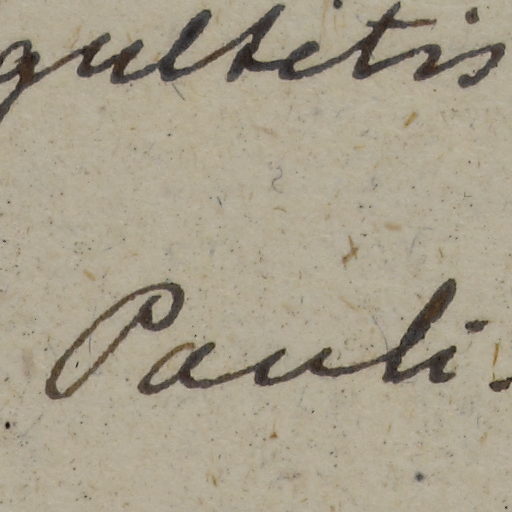 gultetis
Pauli-